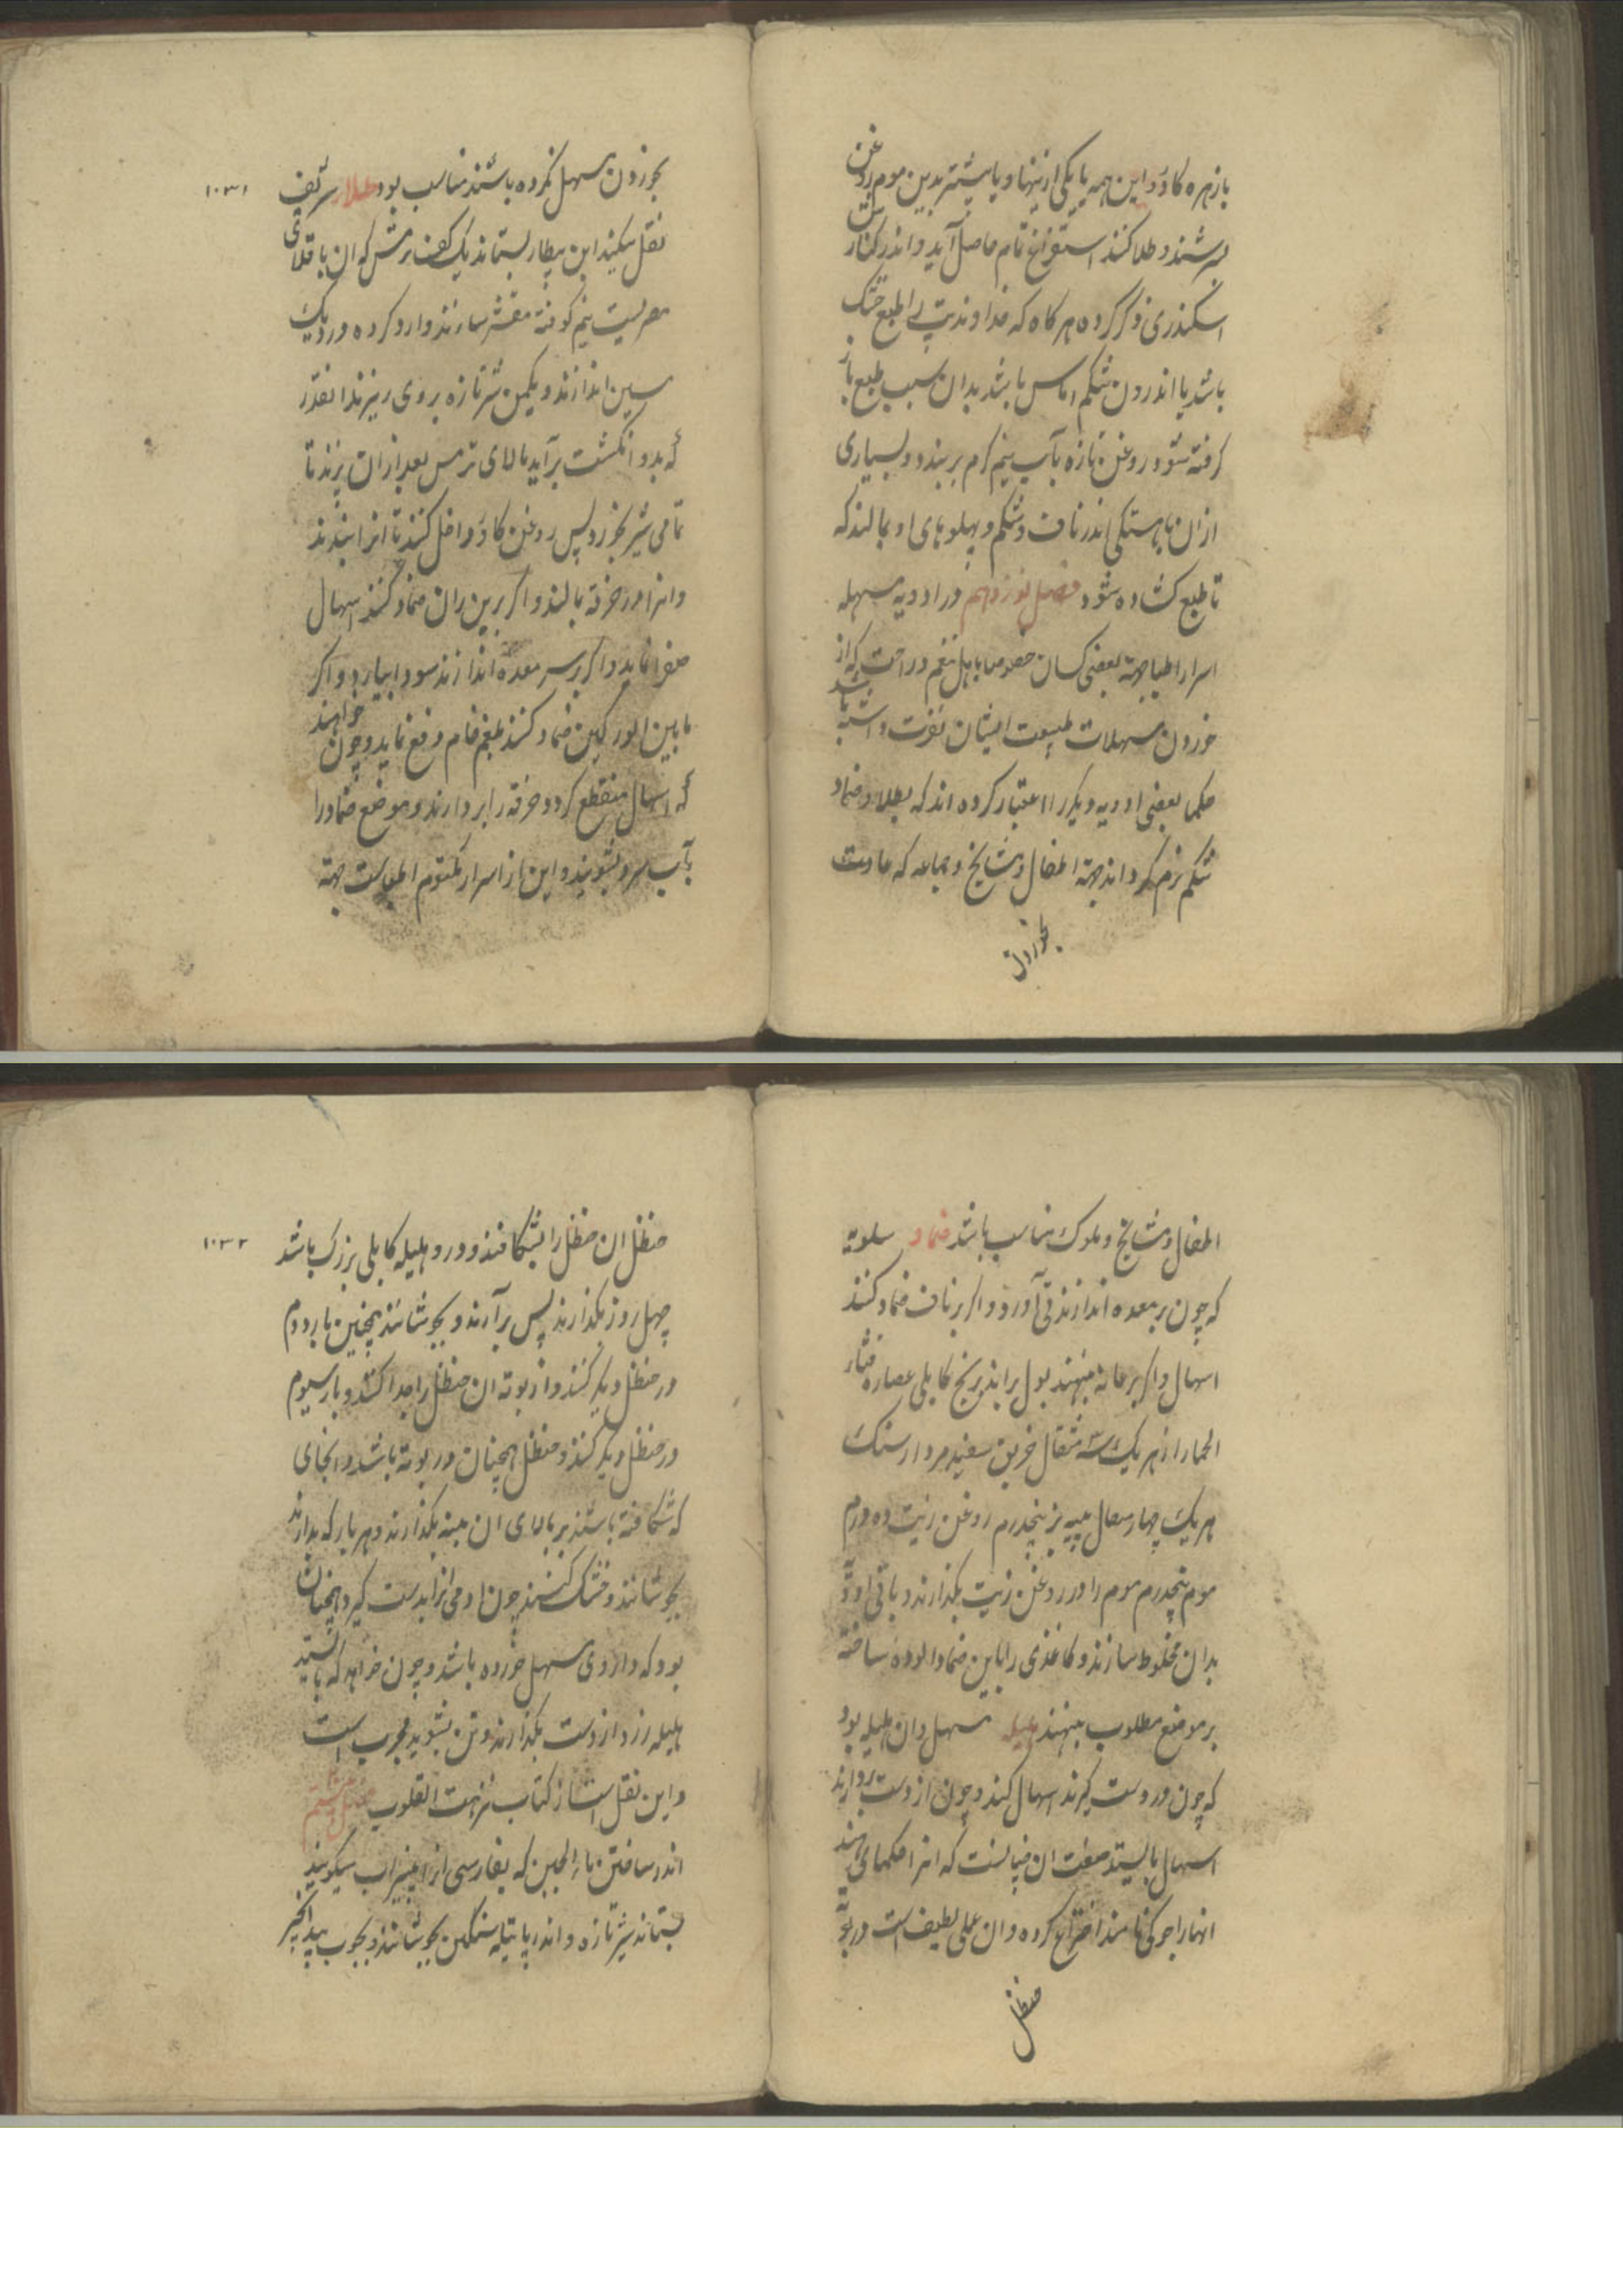 بازهره کاو و این همه یا یکی ازینها و یا بیشتر بدین موم روغن
بسرشند و طلا کنند استفراغ تام حاصل آید و اندر کناش
اسکندری ذکر کرده هر کاه که خداوند تب را طبع خشک
باشد یا اندرون شکم اماس باشد بدان سبب طبع باز
کرفته شود روغن تازه بآب نیم کرم بزنند و بسیاری
ازان باهستکی اندر ناف و شکم و پهلوهای او بمالند که
تا طبع کشاده شود فصل نوزدهم در ادویه مسهله
اسرار اطبا بجهة بعضی کسان خصوصا باهل تنعم و راحت که از
خوردن مسهلات طبیعت ایشان نفرت داشته باشد
حکما بعضی ادویه دیکر را اعتبار کرده اند که بطلا و ضماد
شکم نرم کرداند بجهة اطفال و مشایخ و جماعه که عادت
بخوردن
بخوردن مسهل نکرده باشند مناسب بود طلا شریف
۱۰۳۱
نقل میکند ابن بیطار بستانند یک کف ترمس که ان باقلای
مصریست نیم کوفته مقشر سازند و ارد کرده در دیک
سین اندازند و یکمن شیر تازه بروی ریزند انقدر
که بدو انکشت برآید بالای ترمس بعد ازان بزند تا
تمامی شیر بخورد پس روغن کاو داخل کنند تا انرا ببندند
و انرا در خرقه بمالند و اکر برین ران ضماد کنند اسهال
صفرا نماید و اکر بر سر معده اندازند سودا بیارد و اکر
مابین الورکین ضماد کنند بلغم خام دفع نماید و چون خواهند
که اسهال منقطع کردد خرقه را بردارند و موضع ضماد را
بآب سرد بشویند و این از اسرار مکتوم اطباست بجهة
اطفال و مشایخ و ملوک مناسب باشد ضماد سلوته
که چون بر معده اندازند قی آورد و اکر بر ناف ضماد کنند
اسهال و اکر بر عانه نهند بول براند برنج کابلی عصاره قثاء
الحمار از هر یک سه مثقال خربق سفید مردارسنک
هر یک چهار مثقال پیه بز پنجدرم روغن زیت ده درم
موم پنجدرم موم را در روغن زیت بکدازند و باقی ادویه
بدان مخلوط سازند و کاغذی را باین ضماد الوده ساخته
بر موضع مطلوب بنهند هلیله مسهل و ان هلیله بود
که چون در دست کیرند اسهال کند و چون از دست بردارند
اسهال بایستد صفت ان چنانست که انرا حکمای هند
انها را جوکی نامند اختراع کرده و ان عملی لطیف است در بوته
حنظل
حنظل ان حنظل را بشکافند و در و هلیله کابلی بزرک باشد
۱۰۳۲
چهل روز بکذارند پس برآرند و بجوشانند همچنین بار دوم
در حنظل دیکر کنند و از بوته ان حنظل را جدا کنند و بار سیوم
در حنظل دیکر کنند و حنظل همچنان در بوته باشد و انجای
که شکافته باشند بر بالای ان پنبه بکذارند و هر بار که بدارند
بجوشانند و خشک کنند چون ادمی انرا بدست کیرد همچنان
بود که داروی مسهل خورده باشد و چون خواهد که بایستد
هلیله زرد از دست بکذارند و تن بشوید مجرب است
و این نقل است از کتاب نزهت القلوب فصل بیستم
اندر ساختن ماء الجبن که بفارسی انرا پنیراب میکویند
بستانند شیر تازه و اندر پاتیله سنکین بجوشانند و بچوب بید انجیر